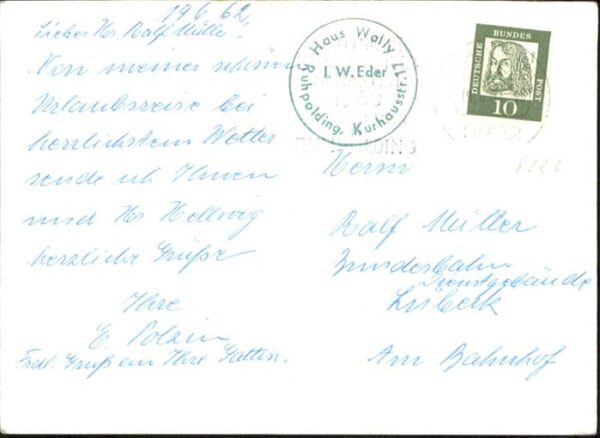 19.6.62.
Lieber Hr Ralf Müller.
Von meiner schönen
Urlaubsreise bei
herrlichstem Wetter
sende ich Ihnen
und Hr Hellwig
herzliche Grüße
Ihre
E. Polzin
Frdl. Gruß an Ihre Gattin.
Haus Wally
I. W. Eder
Ruhpolding, Kurhausstr. 17
DEUTSCHE BUNDES POST
10
Herrn
Ralf Müller
Bundesbahn
Dienstgebäude
Lübeck
Am Bahnhof